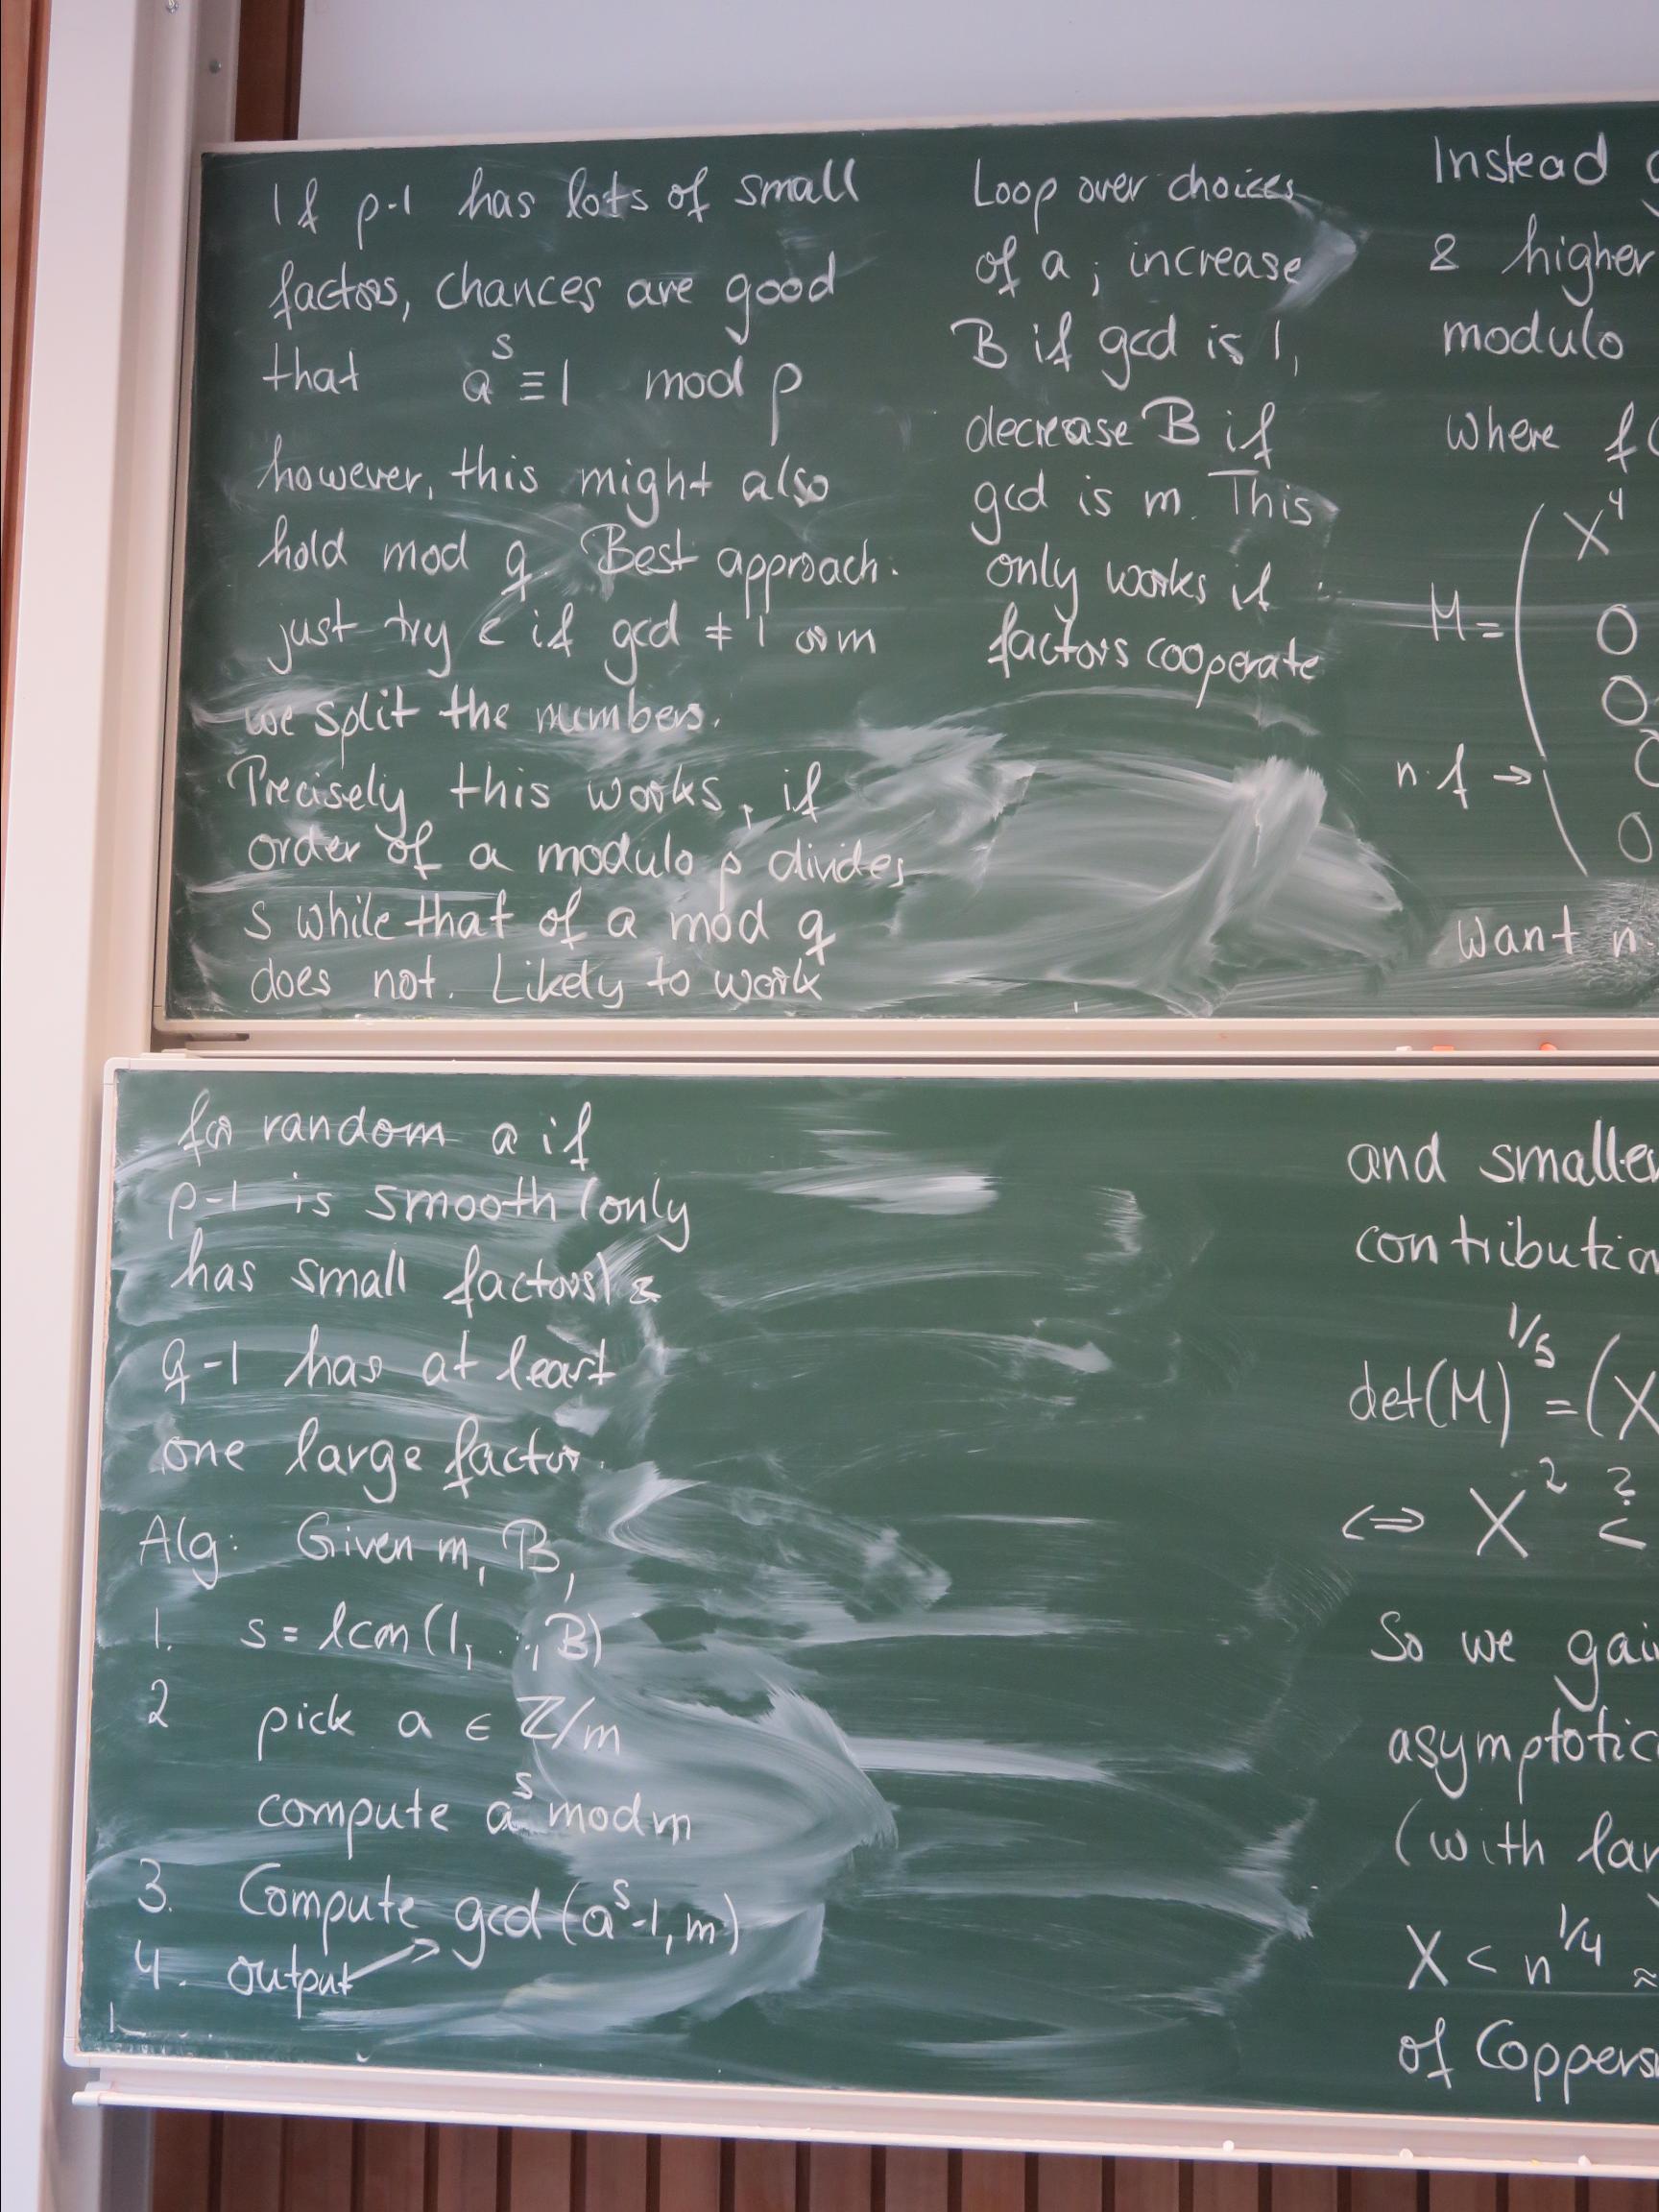 If p-1 has lots of small
factors, chances are good
that a^s ≡ 1 mod p
however, this might also
hold mod q. Best approach:
just try & if gcd ≠ 1 or m
we split the numbers.
Precisely this works, if
order of a modulo p divides
s while that of a mod q
does not. Likely to work
Loop over choices
of a; increase
B if gcd is 1,
decrease B if
gcd is m. This
only works if
factors cooperate
Instead
& higher
modulo
where f(
X^4
M = ( 0
0
n·f → 0
0
Want n
for random a if
p-1 is smooth (only
has small factors) &
q-1 has at least
one large factor.
Alg: Given m, B,
1. s = lcm(1, .., B)
2 pick a ∈ ℤ/m
compute a^s mod m
3. Compute gcd(a^s-1, m)
4. output
and smaller
contribution
det(M)^1/5 = (X
⇔ X^2 <^?
So we gain
asymptotic
(with lar
X < n^1/4 ≈
of Coppers